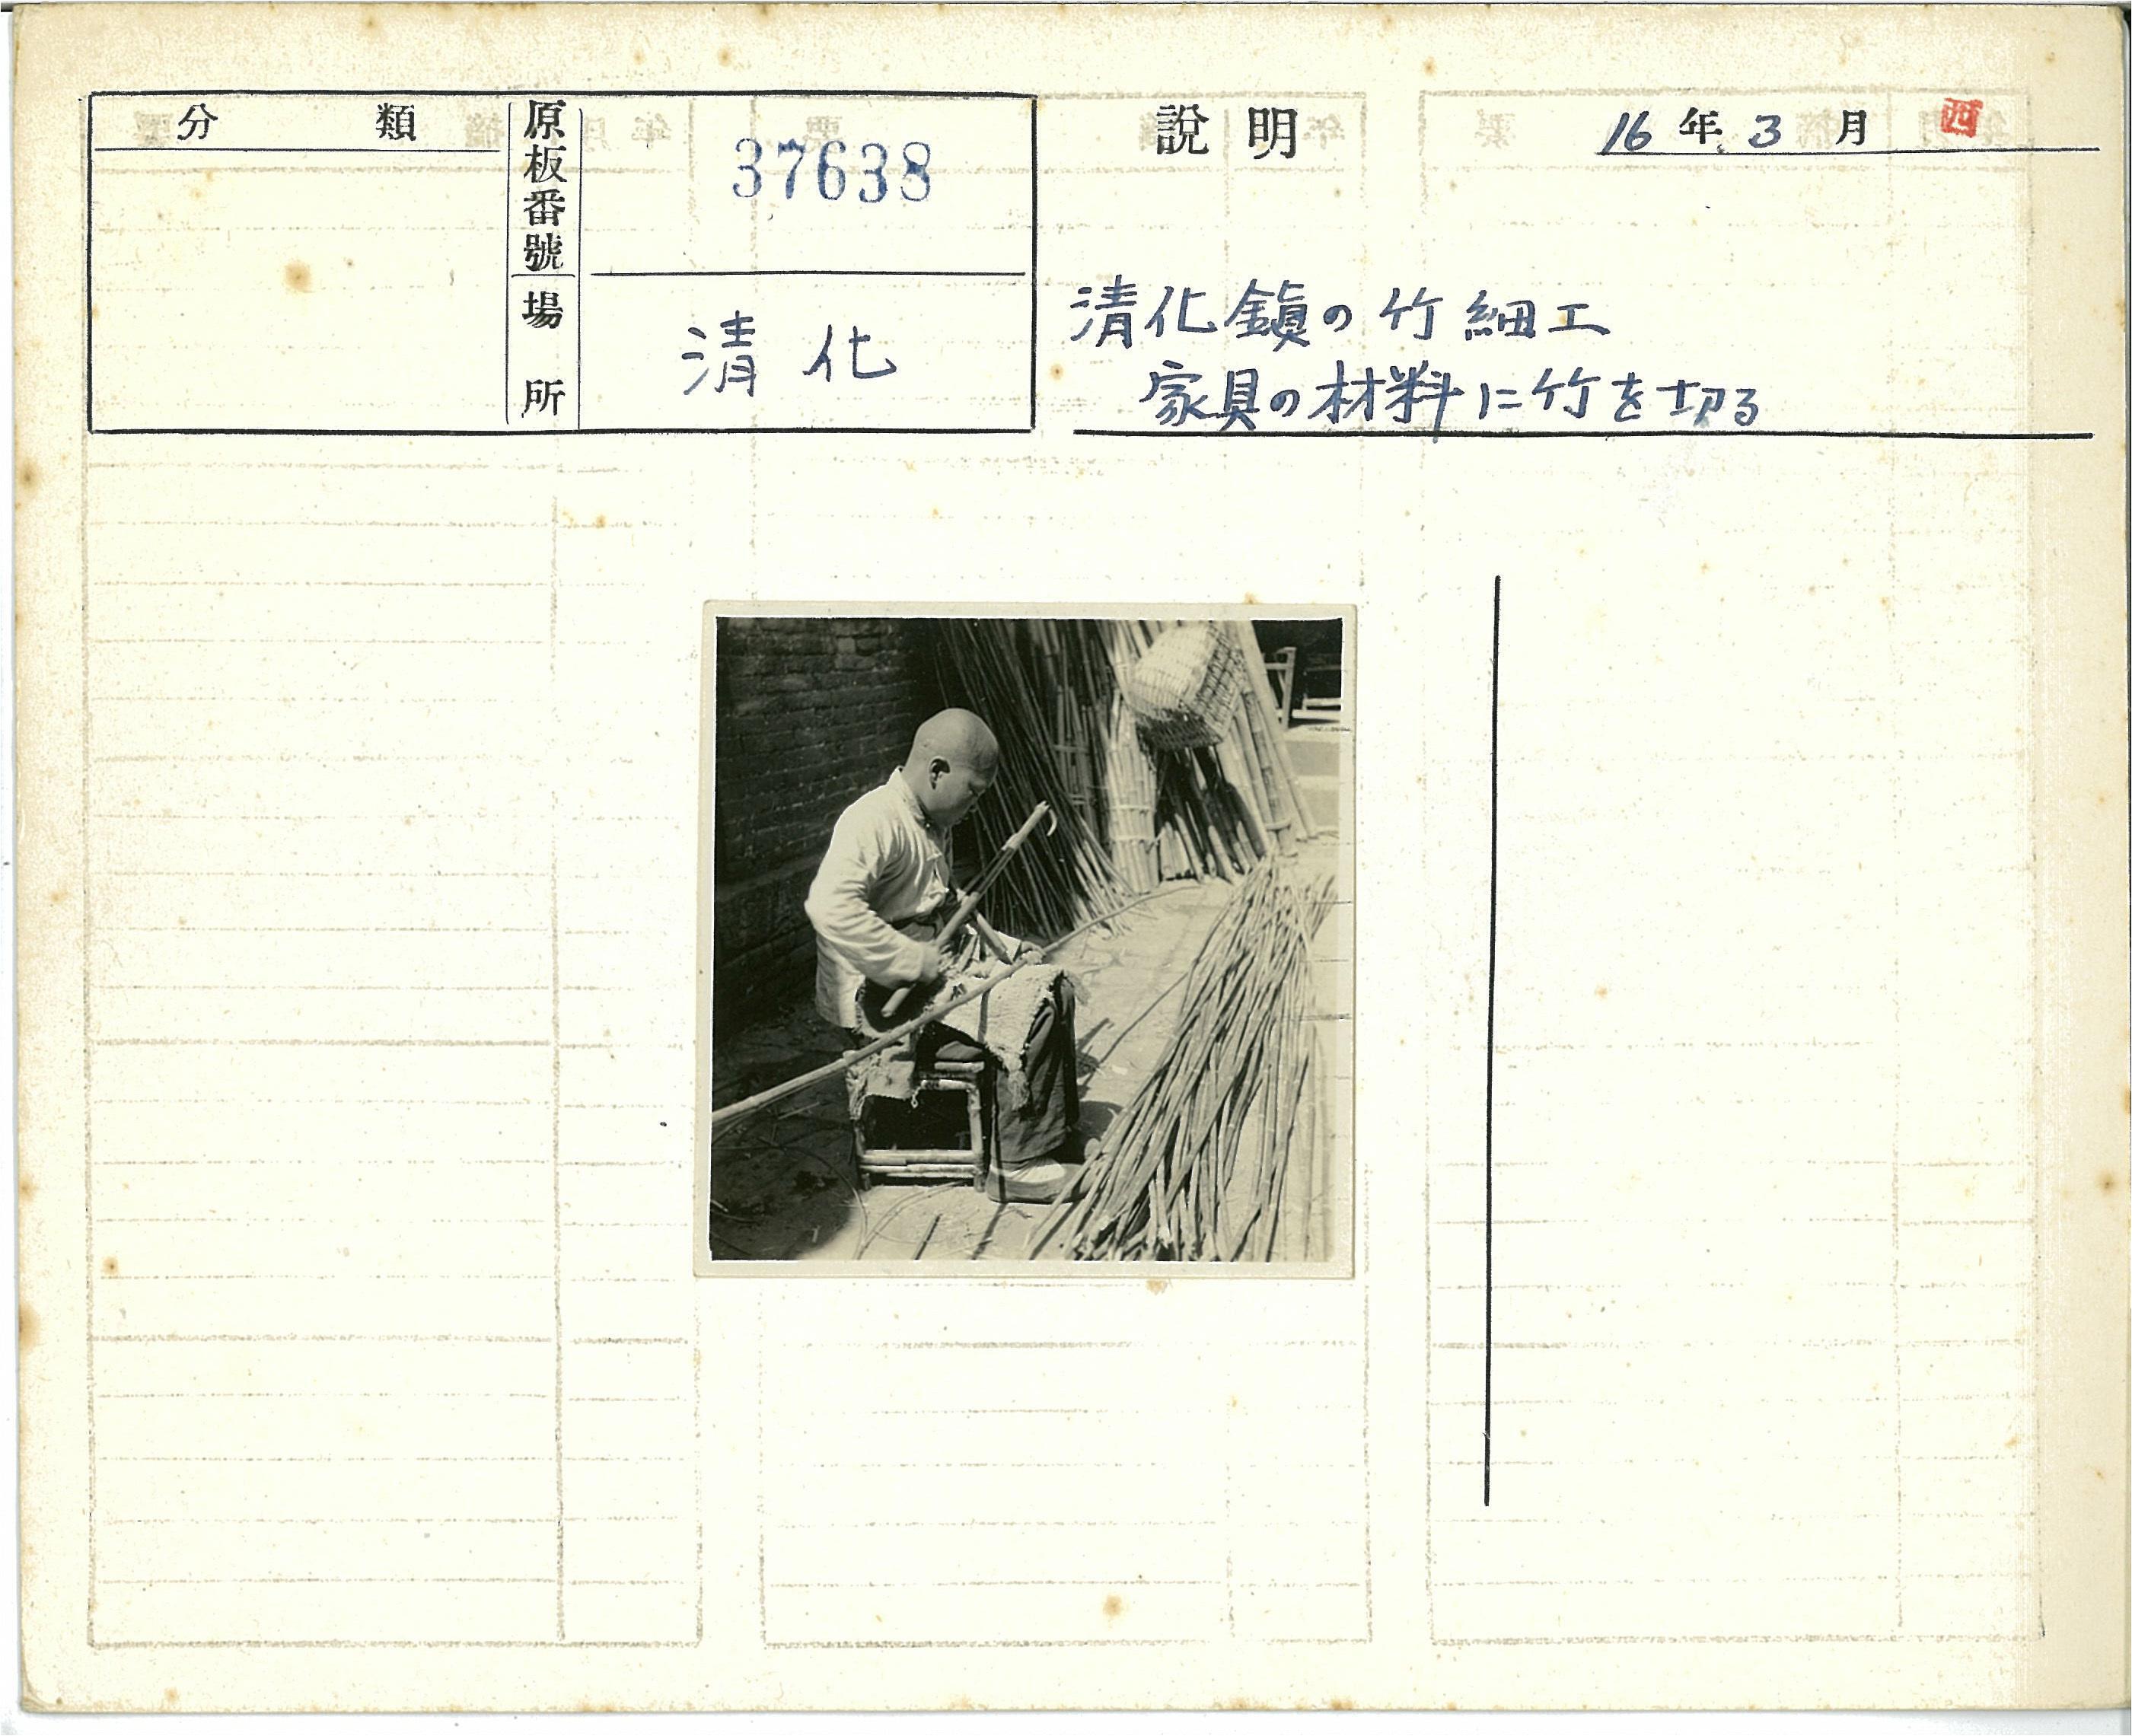 分類
原板番號
37638
場所
清化
説明
16年3月
西
清化鎭の竹細工
家具の材料に竹を切る